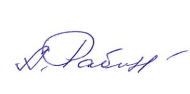 Д. Рабин